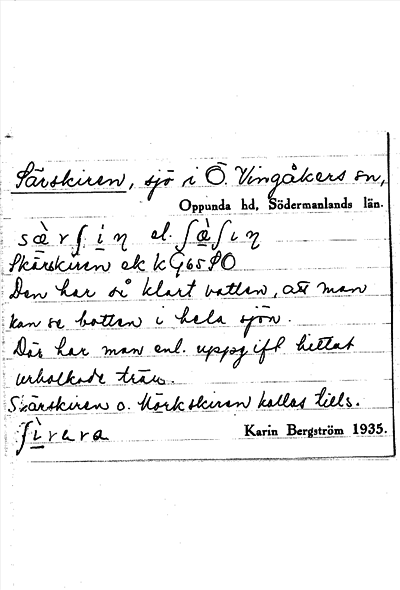 Särskiren, sjö i Ö. Vingåkers sn,
Oppunda hd, Södermanlands län.
sæ̀rʃịη el. ʃæ̀ʃιη
Skärskiren ek k G65 SO
Den har så klart vatten, att man
kan se botten i hela sjön.
Där har man enl. uppgift hittat
urholkade träd.
Särskiren o. Mörkskiren kallas tills.
ʃìrara
Karin Bergström 1935.